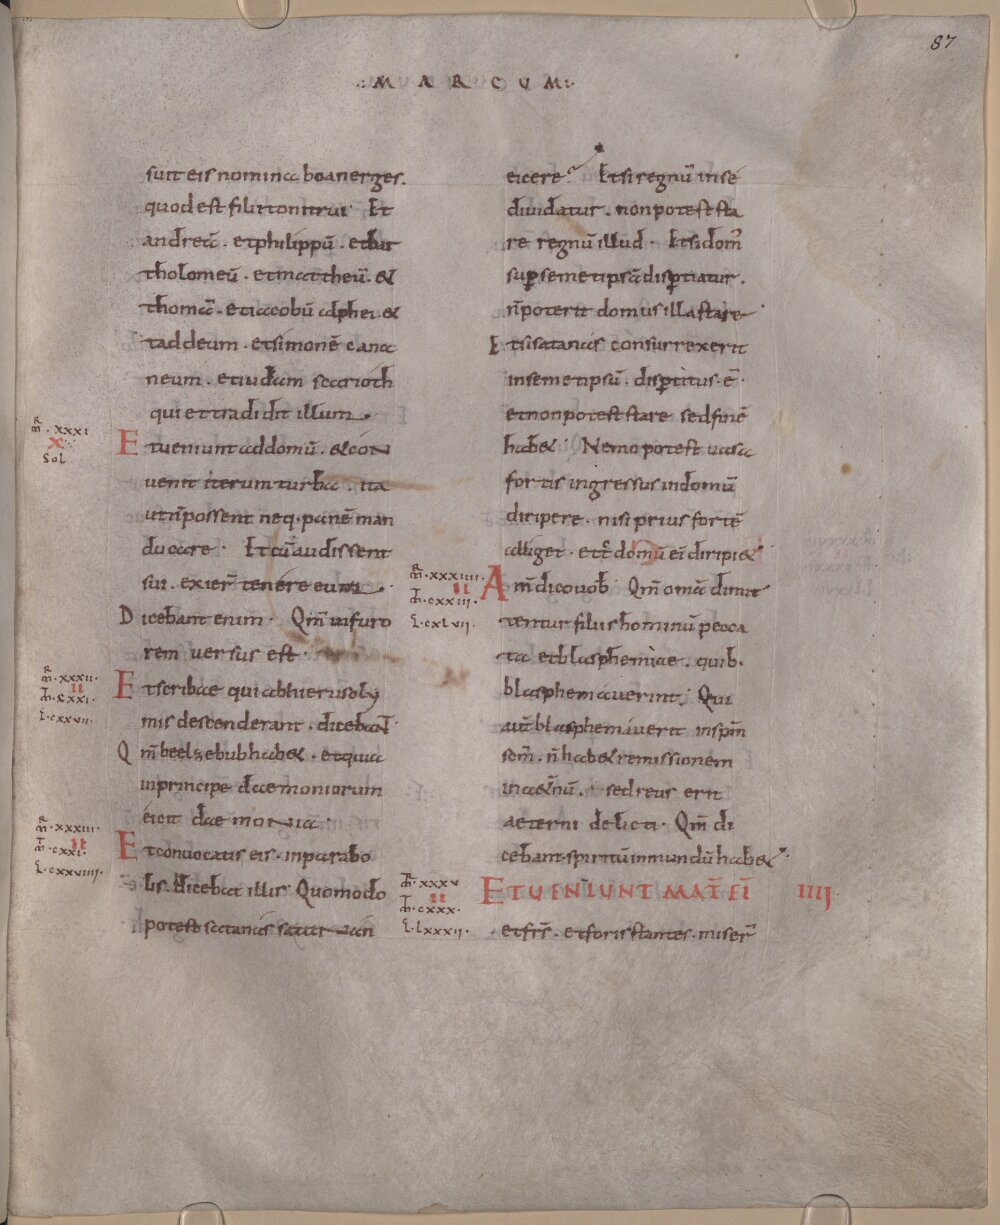 87
·: M A R C U M :·
suit eis nomina boanerges.
quod est filii tonitrui · Et
andreā · et philippū · et bar
tholomeū · et mattheū · &
thomā · et iacobū alphei · &
taddeum · et simonē cana
neum · et iudam scarioth
qui et tradidit illum ·
m̄ · xxxi
x
Sol
Et ueniunt ad domū · & con
uenit iterum turba · ita
ut n̄ possent neq · panē man
ducare · Et cū audissent
sui · exier̄ tenere eum ·
Dicebant enim · Qm̄ in furo
rem uersus est ·
m̄ · xxxii ·
ii
l · cxxvii ·
Et scribae qui ab hierusoly
mis descenderant · dicebant
Qm̄ beelzebub hab& · et quia
in principe daemoniorum
eicit daemonia ·
m̄ · xxxiii ·
ii
· cxxi ·
l · cxxviiii ·
Et conuocatis eis · in parabo
lis dicebat illis · Quomodo
potest satanas satanan
eicere? Et si regnū in se
diuidatur · non potest sta
re regnū illud · Et si dom̄
sup semetipsā disptiatur ·
n̄ poterit domus illa stare
Et si satanas consurrexerit
in semetipsū · disptitus · ē ·
et non potest stare sed finē
hab& · Nemo potest uasa
fortis ingressus in domū
diripere · nisi prius fortē
alliget · et tc̄ domū ei diripi&
m̄ · xxxiiii ·
ii
· cxxiii ·
l · cxlvii ·
Am̄ dico uob · Qm̄ oma dimit
tentur filiis hominū pecca
ta et blasphemiae · quib ·
blasphemauerint · Qui
aut̄ blasphemauerit in spm̄
scm̄ · n̄ hab& remissionem
in aet̄nū · sed reus erit
aeterni delicti · Qm̄ di
cebant · spiritū inmundū hab&
m̄ · xxxv
ii
· cxxx ·
l · lxxxii ·
ET UENIUNT MAT̄ EI̅ IIII ·
et fr̄s · et foris stantes · miser̄